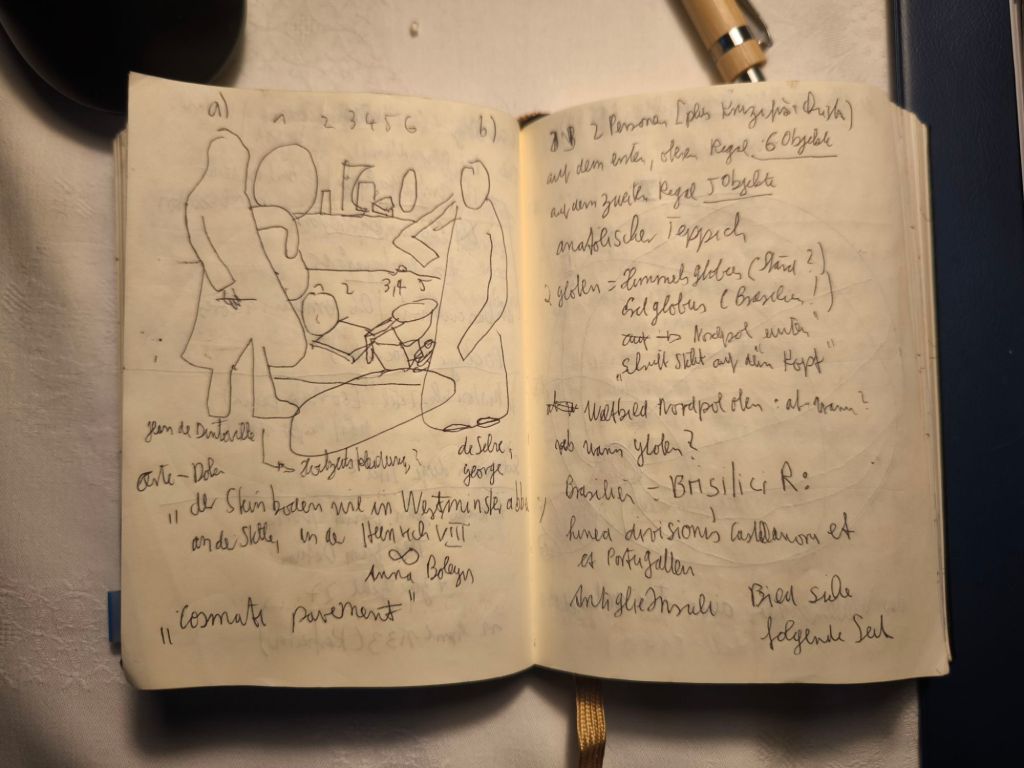 a) 1 2 3 4 5 6 b)
1 2 3,4 5
Jean de Dinteville
de Selve,
george
Kleidung?
"der Steinboden wie in Westminster abbey,
an der Stelle, in der Heinrich VIII
∞
Anna Boleyn
"Cosmati pavement"
2 Personen [plus Kruzifix
auf dem ersten, oberen Regal 6 Objekte
auf dem zweiten Regal 5 Objekte
anatolischer Teppich
2 globen = Himmelsglobus (Stand?)
Erdglobus (Brasilien!)
→ Nordpol unten"
"Schrift steht auf dem Kopf"
Weltbild Nordpol oben: ab wann?
ab wann globen?
Brasilien = BRISILICI R:
Linea divisionis Castellanorum et
et Portugallen
Antiglie Insule Bild siehe
folgende Seite